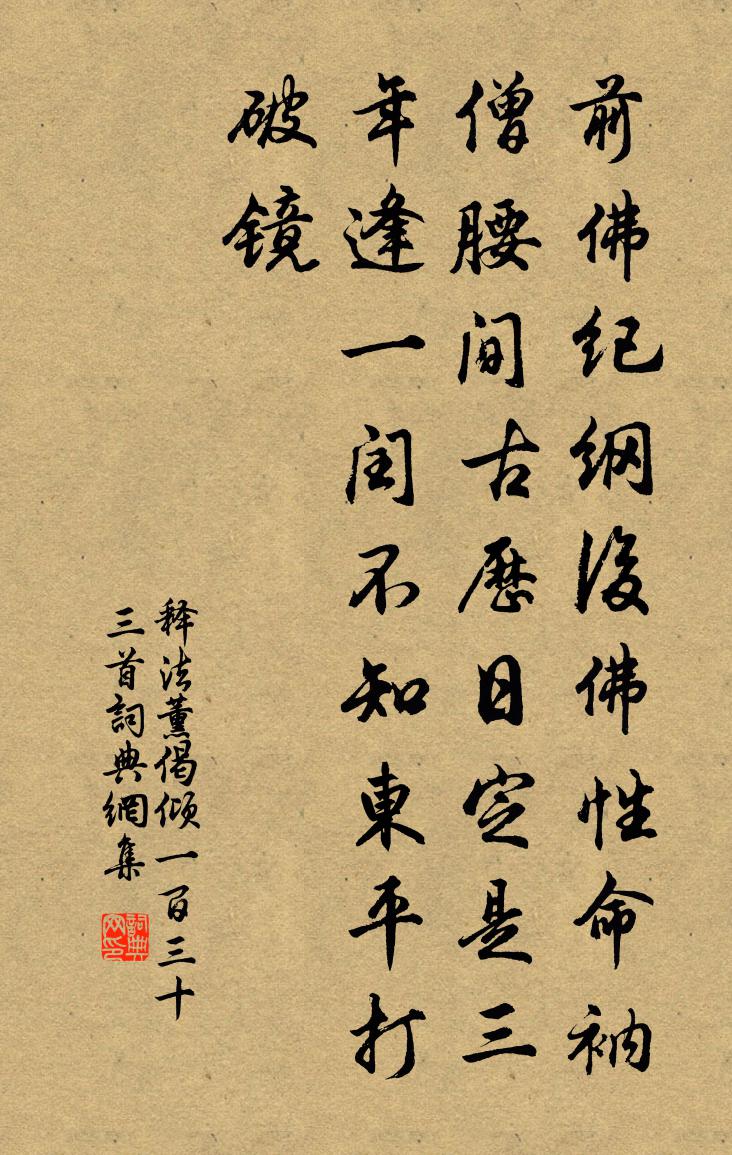 前佛纪纲後佛性命衲
僧腰间古歷日定是三
年逢一闰不知東平打
破镜
释法薰偈倾一百三十
三首詞典網集
詞典网印